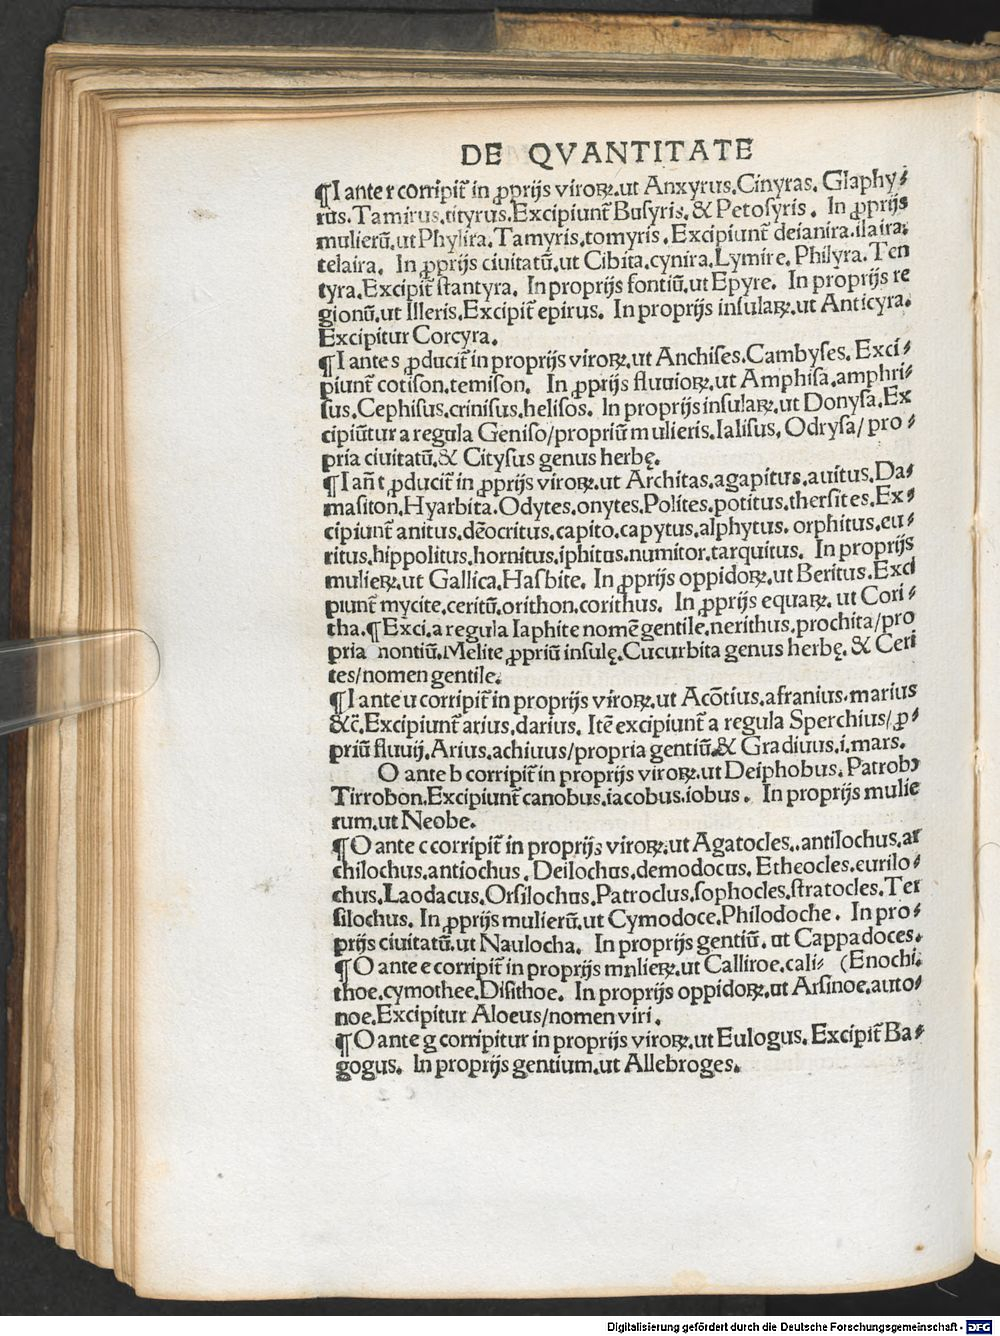 DE QVANTITATE
¶I ante r corripit̃ in ꝓprijs viroꝝ.ut Anxyrus.Cinyras. Glaphy⸗
rus.Tamirus.tityrus.Excipiunt̃ Busyris.& Petosyris. In ꝓprijs
mulierũ.ut Phylira.Tamyris.tomyris.Excipiunt̃ deianira.ilaira.
telaira. In ꝓprijs ciuitatũ.ut Cibita.cynira.Lymire.Philyra.Ten
tyra.Excipit̃ stantyra. In proprijs fontiũ.ut Epyre. In proprijs re
gionũ.ut Illeris.Excipit̃ epirus. In proprijs insulaꝝ.ut Anticyra.
Excipitur Corcyra.
¶I ante s ꝓducit̃ in proprijs viroꝝ.ut Anchises.Cambyses. Exci⸗
piunt̃ cotison.temison. In ꝓprijs fluuioꝝ.ut Amphisa.amphri⸗
sus.Cephisus.crinisus.helisos. In proprijs insulaꝝ.ut Donysa.Ex
cipiũtur a regula Geniso/propriũ mulieris.Ialisus. Odrysa/pro⸗
pria ciuitatũ.& Citysus genus herbę.
¶I añ t ꝓducit̃ in ꝓprijs viroꝝ.ut Architas.agapitus.auitus.Da⸗
masiton.Hyarbita.Odytes.onytes.Polites.potitus.thersites.Ex⸗
cipiunt̃ anitus.dẽocritus.capito.capytus.alphytus. orphitus.eu⸗
ritus.hippolitus.hornitus.iphitus.numitor.tarquitus. In proprijs
mulieꝝ.ut Gallica.Hasbite. In ꝓprijs oppidoꝝ.ut Beritus.Exci
piunt̃ mycite.ceritũ.orithon.corithus. In ꝓprijs equaꝝ. ut Cori⸗
tha.¶Exci.a regula Iaphite nomẽ gentile.nerithus.prochita/pro
pria montiũ.Melite ꝓpriũ insulę.Cucurbita genus herbę.& Ceri
tes/nomen gentile.
¶I ante u corripit̃ in proprijs viroꝝ.ut Acõtius.afranius.marius
&c̃.Excipiunt̃ arius.darius. Itẽ excipiunt̃ a regula Sperchius/ꝓ⸗
priũ fluuij.Arius.achiuus/propria gentiũ.& Gradiuus.i.mars.
O ante b corripit̃ in proprijs viroꝝ.ut Deiphobus.Patrobꝯ
Tirrobon.Excipiunt̃ canobus.iacobus.iobus. In proprijs mulie
rum.ut Neobe.
¶O ante c corripit̃ in proprijs viroꝝ.ut Agatocles..antilochus.ar
chilochus.antiochus. Deilochus.demodocus. Etheocles.eurilo⸗
chus.Laodacus.Orsilochus.Patroclus.sophocles.stratocles.Ter
silochus. In ꝓprijs mulierũ.ut Cymodoce.Philodoche. In pro⸗
prijs ciuitatũ.ut Naulocha. In proprijs gentiũ. ut Cappadoces.
¶O ante e corripit̃ in proprijs mnlieꝝ.ut Calliroe.cali⸗ (Enochi.
thoe.cymothee.Disithoe. In proprijs oppidoꝝ.ut Arsinoe.auto⸗
noe.Excipitur Aloeus/nomen viri.
¶O ante g corripitur in proprijs viroꝝ.ut Eulogus. Excipit̃ Ba⸗
gogus. In proprijs gentium.ut Allebroges.
Digitalisierung gefördert durch die Deutsche Forschungsgemeinschaft - DFG